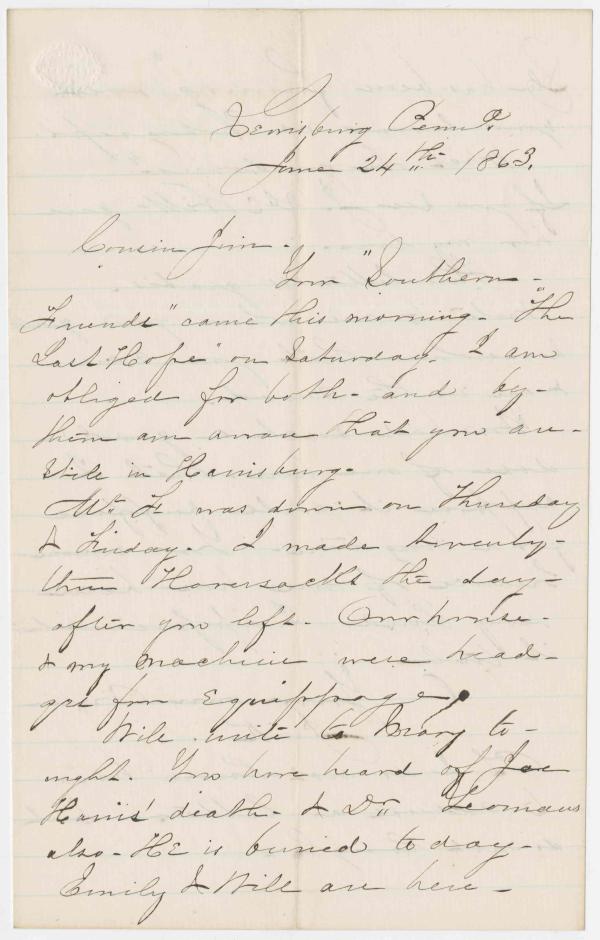 Lewisburg Penna.
June 24th 1863.
Cousin Jim -
Your "Southern -
Friends" came this morning - "The
Last Hope" on Saturday. I am
obliged for both - and by -
them am aware that you are -
still in Harrisburg -
Mr. F was down on Thursday
& Friday - I made twenty -
three Haversacks the day -
after you left - Our house -
& my machine were head -
qrs for Equippage.
Will write to Mary to -
night. You have heard of Joe
Harris' death - & Dr.
also - He is buried today -
Emily & Will are here -